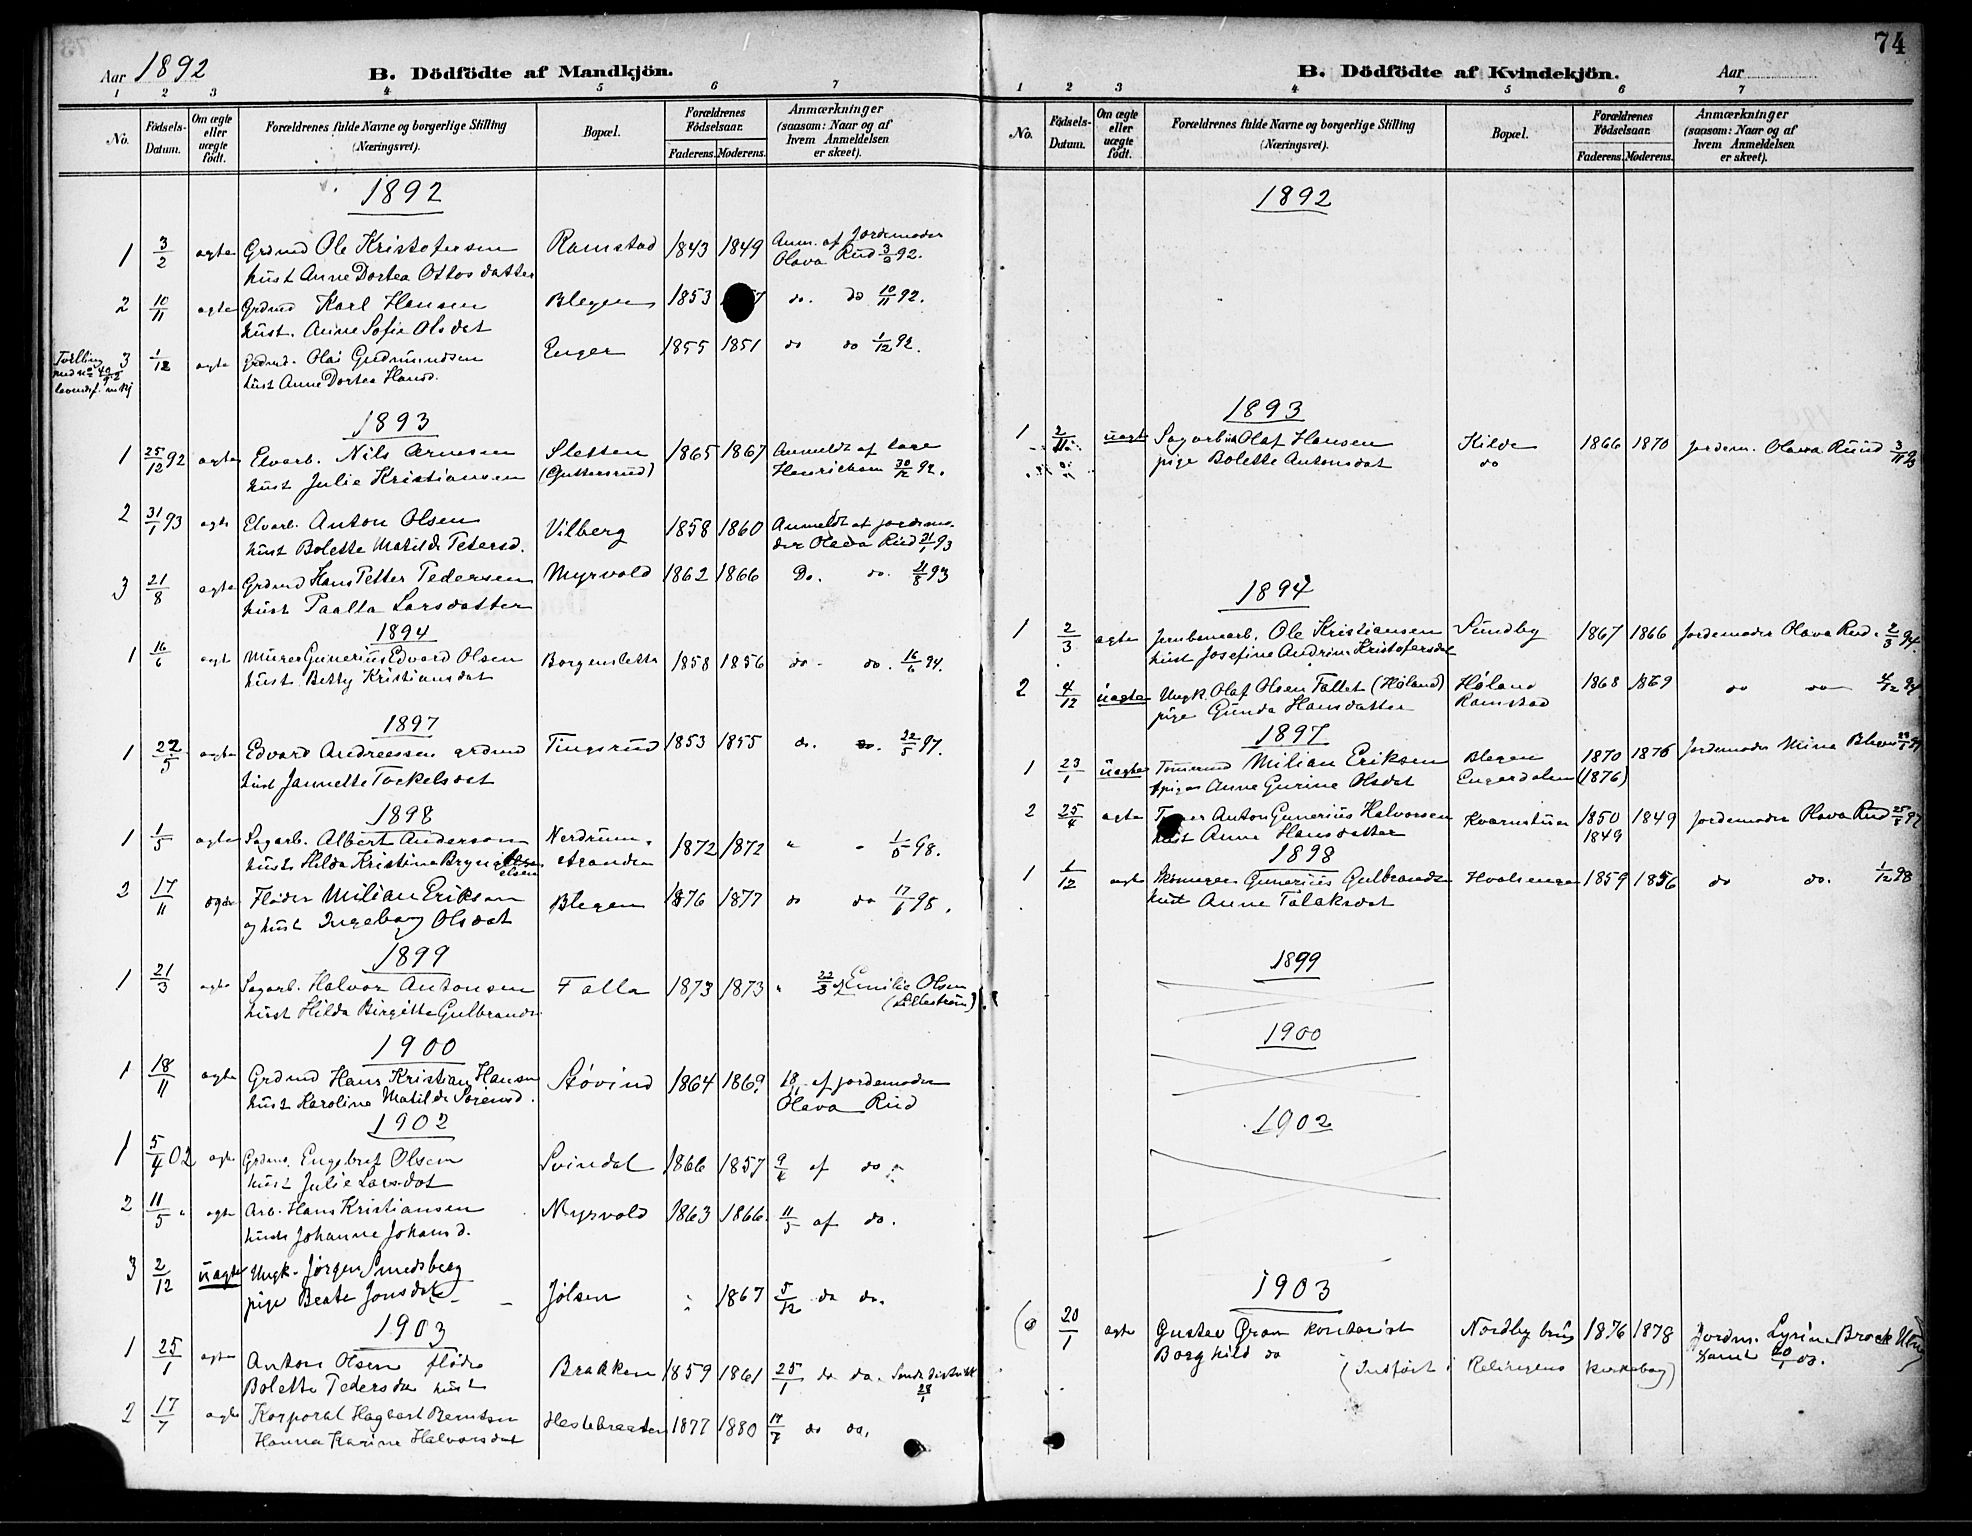 Aar 1892 B. Dödfödte af Mandkjön.
1 2 3 4 5 6 7
No. Födsels-Datum. Om ægte eller uægte født. Forældrenes fulde Navne og borgerlige Stilling (Næringsvei). Bopæl. Forældrenes Födselsaar. Faderens. Moderens. Anmærkninger (saasom: Naar og af hvem Anmeldelsen er skeet).
1892
1 3/2 ægte Grdmd Ole Kristofersen Ramstad 1843 1849 Anm. af Jordemoder
hust Anne Dortea Ottosdatter Olava Rud 3/2 92.
2 10/11 ægte Grdmd Karl Hansen Blegen 1853 do. do 10/11 92.
hust. Anne Sofie Olsdat
Tvilling 3 1/12 ægte Grdmd. Olai Gudmundsen Enger 1855 1851 do do 1/12 92.
hust Anne Dortea Hansd.
1893
1 25/12 92 ægte Elvarb. Nils Arnesen Sletten 1865 1867 Anmeldt af Lars
hust Julie Kristiansen (Guttersrud) Henriksen 30/12 92.
2 31/1 93 ægte Elvarb. Anton Olsen Vilberg 1858 1860 Anmeldt af jordemo-
hust Bolette Matilde Petersd. der Olava Rud 31/1 93
3 21/8 ægte Grdmd Hans Petter Pedersen Myrvold 1862 1866 Do. do. 21/8 93
hust Larsdatter
1894
1 16/6 ægte Murer Gunerius Edvard Olsen Borgensletta 1858 1856 do. do. 16/6 94.
hust. Betty Kristiansdat
1897
1 22/5 ægte Edvard Andreassen grdmd Tingsrud 1853 1855 do. do. 22/5 97.
hust Jannette
1898
1 1/5 ægte Sagarb. Albert Anderson Nerdrum- 1872 1872 " " 1/5 98.
hust Hilda Kristine stranden
2 17/11 ægte Fløder Milian Eriksen Blegen 1876 1877 do do 98.
og hust Ingeborg Olsdat
1899
1 21/3 ægte Sagarb. Halvor Antonsen Falla 1873 1873 " 22/3 af Emilie Olsen
hust Hilda Birgitte Gulbrands (Lillestrøm)
1900
1 18/11 ægte Grdmd Hans Kristian Hansen Støvind 1864 1869. 18/11 af jordemoder
hust Karoline Matilde Sørensd. Olava Rud
1902
1 5/4 02 ægte Grdmd. Engebret Olsen Svindal 1866 1857 9/4 af do
hust Julie Larsdat
2 11/5 " ægte Arb. Hans Kristiansen Myrvold 1863 1866. 11/5 af do.
hust Johanne Johansd.
3 2/12 uægte Ungk. Jørgen Smedsberg
pige Beate Jonsdat Jølsen " 1867 5/12 do do.
1903
1 25/1 ægte Anton Olsen fløder Brakken 1859 1861 25/1 do do.
Bolette Pedersda hust
2 17/7 ægte Korporal Hagbart Berntsen Hestebraaten 1877 1880 17/7 do do.
Hanna Karine Halvorsdat
74
B. Dödfödte af Kvindekjön. Aar
1 2 3 4 5 6 7
No. Födsels-Datum. Om ægte eller uægte födt. Forældrenes fulde Navne og borgerlige Stilling (Næringsvei). Bopæl. Forældrenes Födselsaar. Faderens. Moderens. Anmærkninger (saasom: Naar og af hvem Anmeldelsen er skeet).
1892
1893
1 2/11 uægte Sagarb. Olaf Hansen Kilde 1866 1870 Jordem. Olava Ruud 3/11 93
pige Bolette Antonsdat do
1894
1 2/3 ægte Jernbanearb. Ole Kristiansen Sundby 1867 1866 Jordemoder Olava Rud. 2/3 94.
hust Josefine Andrine Kristofersdat
2 4/12 uægte Ungk. Olaf Olsen Fallet (Høland) Høland 1868 1869 do do 4/12 94
pige Gunda Hansdatter Ramstad
1897
1 23/1 uægte Milian Eriksen Blegen 1870 1876 Jordemoder Mina
pige Anne Gurine Olsdat Engerdalen (1876)
2 25/4 ægte Anton Gunerius Halvorsen Kvernstuen 1850 1849 Jordemoder Olava Rud 97
hust Anne Hansdatter 1849
1898
1 1/12 ægte Skomager Gunerius Gulbrands Hvalsenga 1859 1856 do do. 1/12 98
hust Anne Tolaksdat
1899
1900
1902
1903
20/1 ægte Gustav Gran kontorist Nordby brug 1876 1878 Jordm. Lysine Brock
Borghild do (Indført i Relingens Kirkebog) samt 20/1 03.